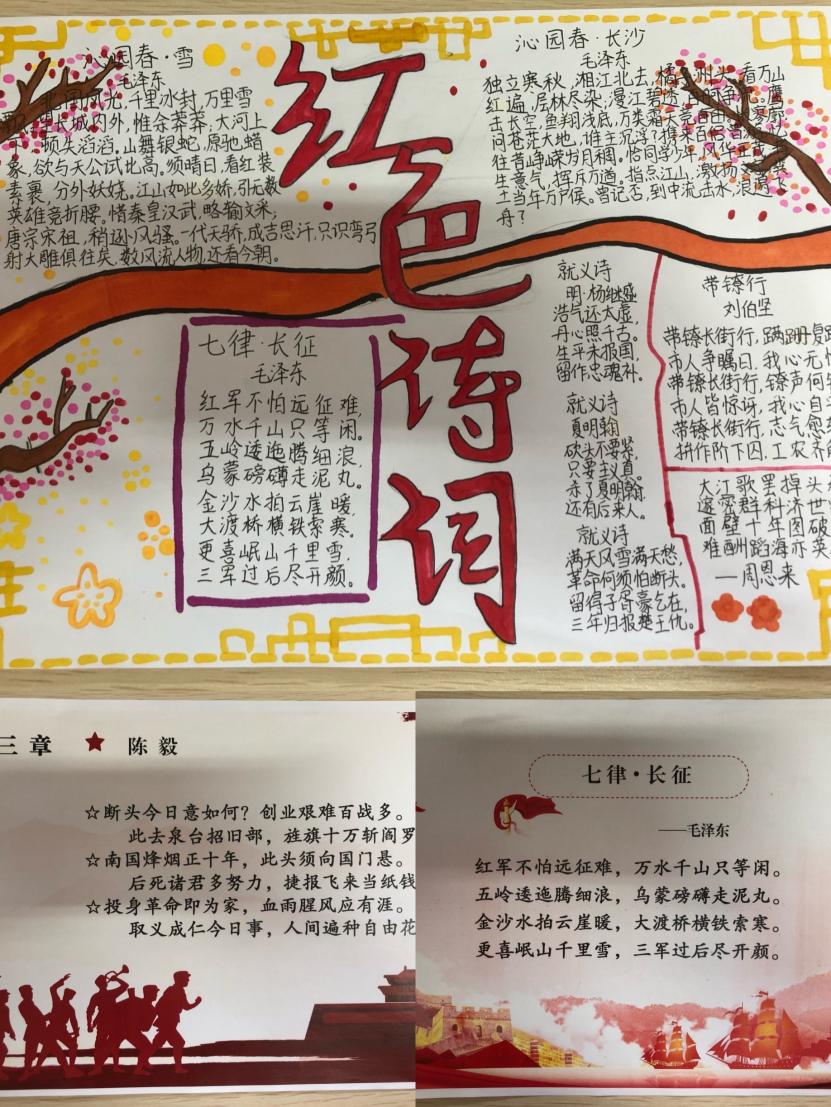 沁园春·雪
毛泽东
北国风光,千里冰封,万里雪
长城内外,惟余莽莽;大河上
顿失滔滔。山舞银蛇,原驰蜡
象,欲与天公试比高。须晴日,看红装
素裹,分外妖娆。江山如此多娇,引无数
英雄竞折腰。惜秦皇汉武,略输文采;
唐宗宋祖,稍逊风骚。一代天骄,成吉思汗,只识弯弓
射大雕俱往矣,数风流人物,还看今朝。
红色诗词
沁园春·长沙
毛泽东
独立寒秋,湘江北去,橘 洲头,看万山
红遍,层林尽染;漫江碧透,
击长空,鱼翔浅底,万类霜天竞自由
问苍茫大地,谁主沉浮?携来百侣
往昔峥嵘岁月稠。恰同学少年,风华正
生意气,挥斥方遒。指点江山,激扬文
土当年万户侯。曾记否,到中流击水,浪遏飞
舟?
七律·长征
毛泽东
红军不怕远征难,
万水千山只等闲。
五岭逶迤腾细浪,
乌蒙磅礴走泥丸。
金沙水拍云崖暖,
大渡桥横铁索寒。
更喜岷山千里雪,
三军过后尽开颜。
就义诗
明·杨继盛
浩气还太虚,
丹心照千古。
生平未报国,
留作忠魂补。
就义诗
夏明翰
砍头不要紧,
只要主义真。
杀了夏明翰,
还有后来人。
就义诗
满天风雪满天愁,
革命何须怕断头。
留得子胥豪气在,
三年归报楚王仇。
带镣行
刘伯坚
带镣长街行,蹒跚复
市人争瞩目,我心无
带镣长街行,镣声何
市人皆惊讶,我心自
带镣长街行,志气愈
拼作阶下囚,工农齐
大江歌罢掉头
邃密群科济世
面壁十年图破
难酬蹈海亦英
—周恩来
三章 ★ 陈毅
☆断头今日意如何?创业艰难百战多。
此去泉台招旧部,旌旗十万斩阎罗
☆南国烽烟正十年,此头须向国门悬。
后死诸君多努力,捷报飞来当纸钱
☆投身革命即为家,血雨腥风应有涯。
取义成仁今日事,人间遍种自由花
七律·长征
——毛泽东
红军不怕远征难,万水千山只等闲。
五岭逶迤腾细浪,乌蒙磅礴走泥丸。
金沙水拍云崖暖,大渡桥横铁索寒。
更喜岷山千里雪,三军过后尽开颜。